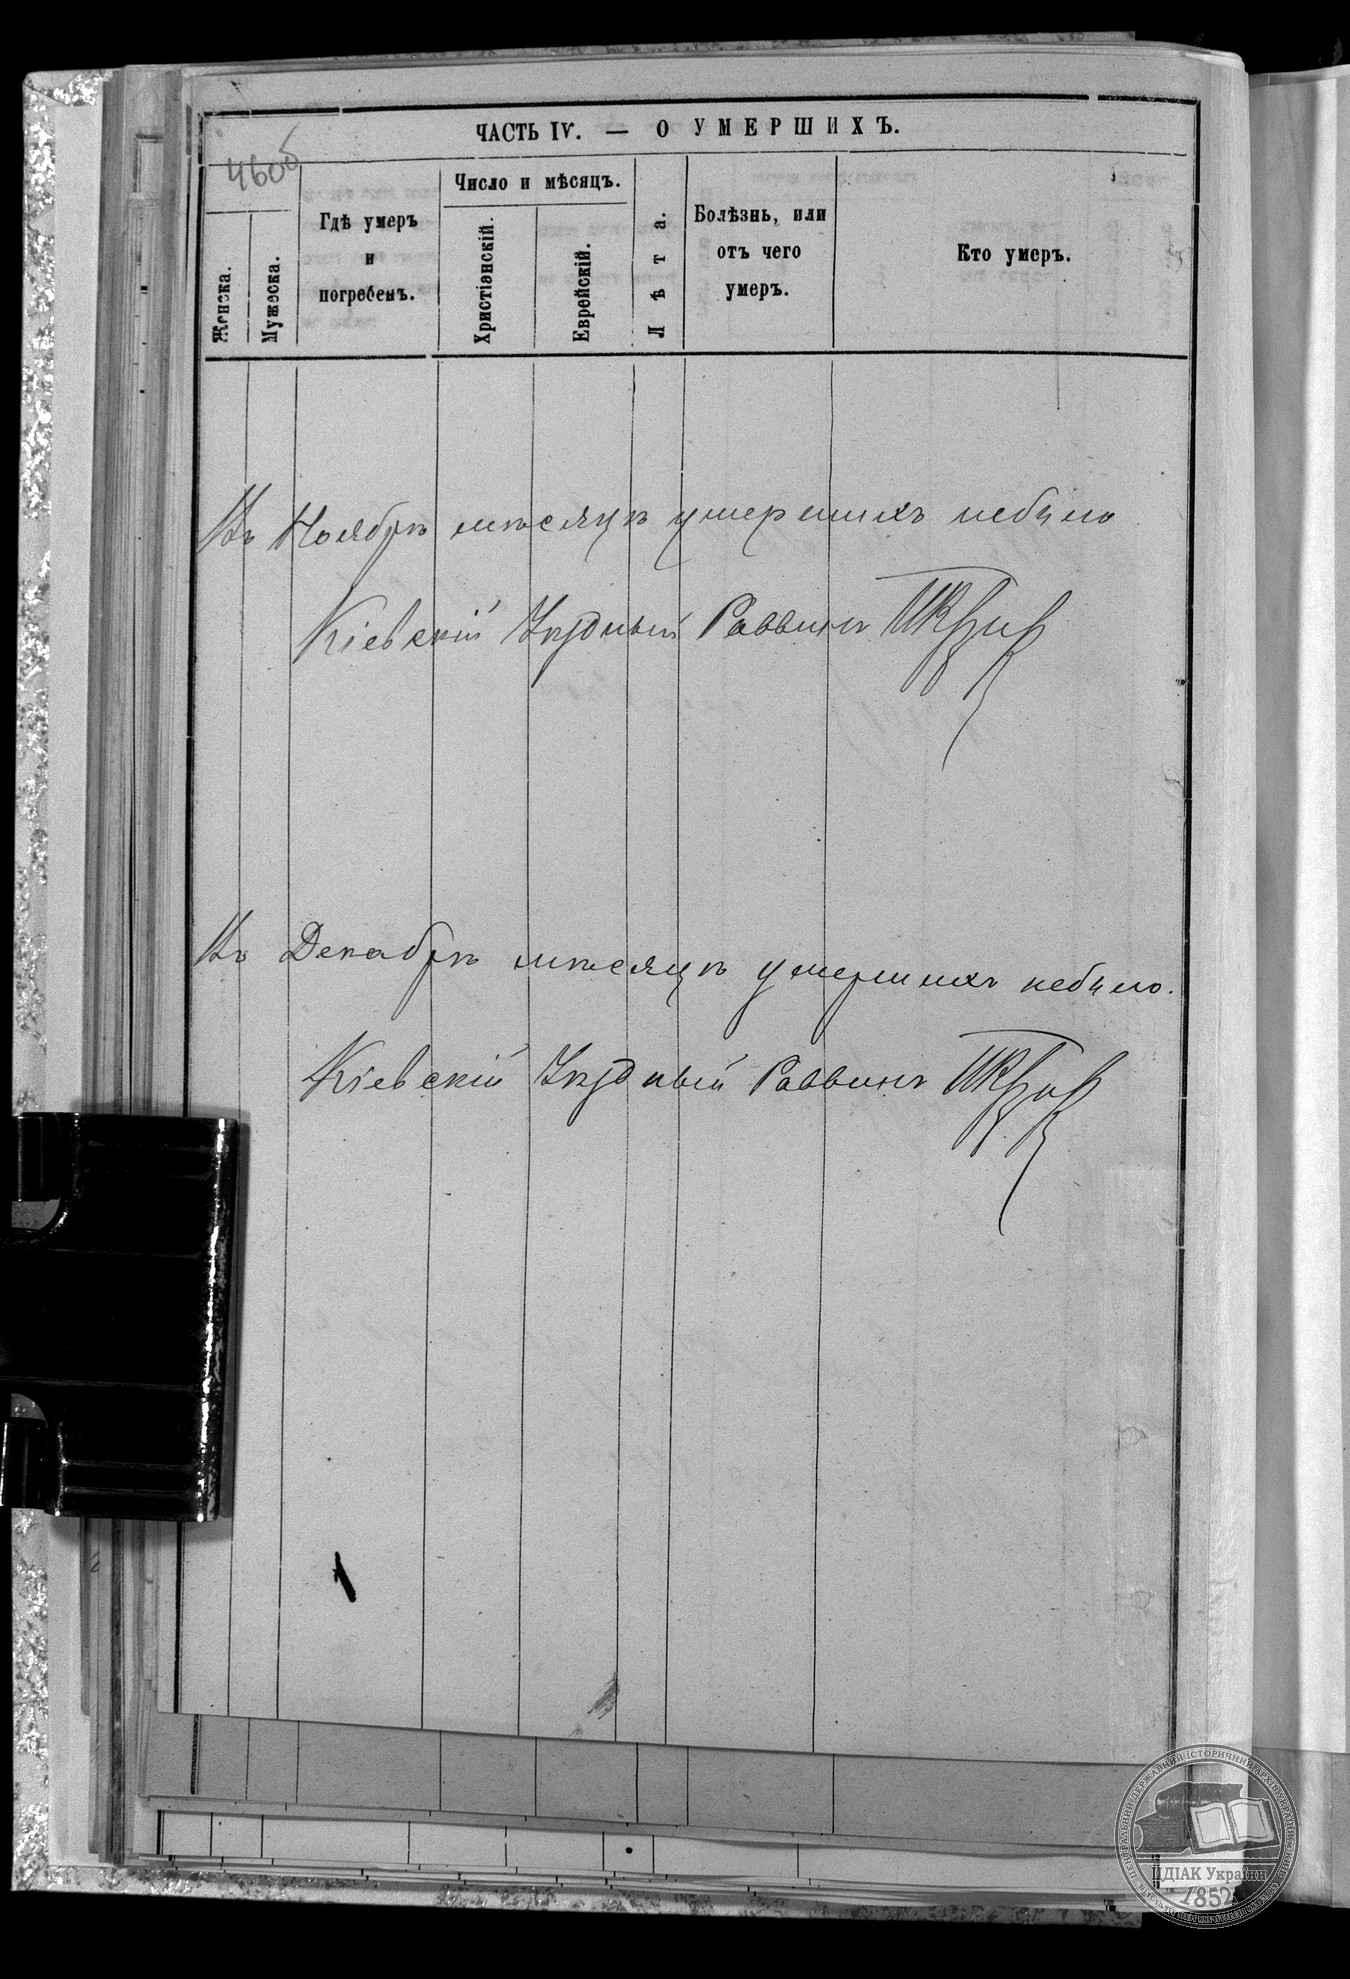 ЧАСТЬ IV. — О УМЕРШИХЪ.
460б
Женска.
Мужеска.
Гдѣ умеръ
и
погребенъ.
Число и мѣсяцъ.
Христіанскій.
Еврейскій.
Лѣта.
Болѣзнь, или
отъ чего
умеръ.
Кто умеръ.
Въ Ноябрѣ мѣсяцѣ умершихъ небыло
Кіевскій Уѣздный Раввинъ
Въ Декабрѣ мѣсяцѣ умершихъ небыло.
Кіевскій Уѣздный Раввинъ
ЦЕНТРАЛЬНИЙ ДЕРЖАВНИЙ ІСТОРИЧНИЙ АРХІВ УКРАЇНИ
ЦДІАК України
1852